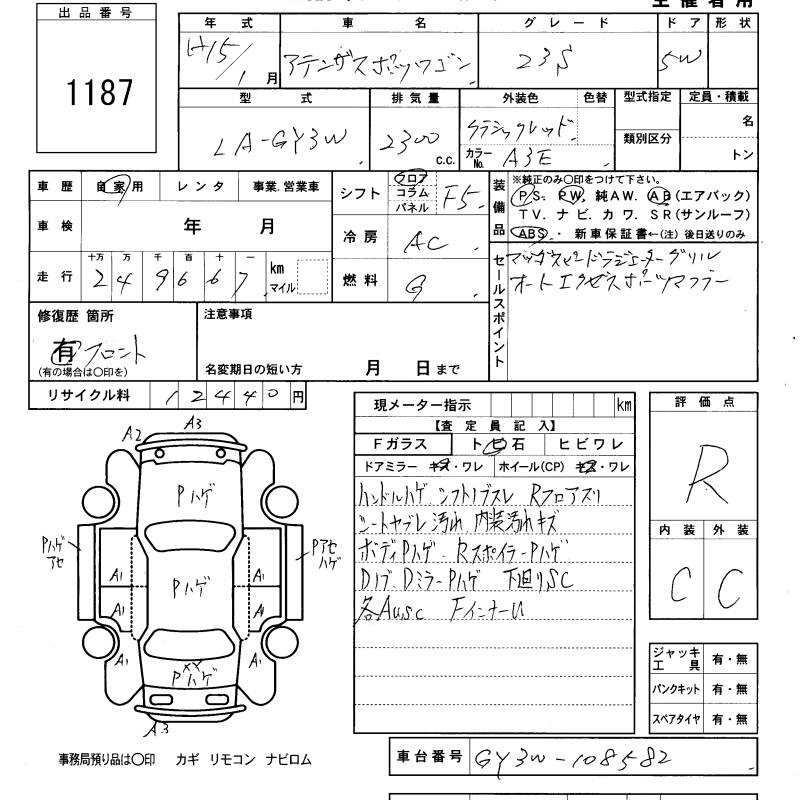 出品番号
1187
年式 車名 グレード ドア 形状
H15/1月 アテンザスポーツワゴン 23S 5W
型式 排気量 外装色 色替 型式指定 定員・積載
LA-GY3W 2300 c.c. クラシックレッド 名
カラーNo. A3E 類別区分 トン
車歴 自家用 レンタ 事業.営業車
シフト フロア コラム パネル F5
車検 年 月
冷房 AC
走行 十万 万 千 百 十 一
249667 km マイル
燃料 G
装備品
※純正のみ〇印をつけて下さい。
PS. PW. 純AW. AB(エアバック)
TV. ナビ. カワ. SR(サンルーフ)
ABS. 新車保証書←(注) 後日送りのみ
セールスポイント
マツダスピードラジエーターグリル
オートエクゼスポーツマフラー
修復歴 箇所
有 フロント
(有の場合は〇印を)
注意事項
名変期日の短い方 月 日まで
リサイクル料 12440円
現メーター指示 km
【査定員記入】
Fガラス トビ石 ヒビワレ
ドアミラー キズ・ワレ ホイール(CP) キズ・ワレ
ハンドルハゲ シフトノブスレ Rフロアズリ
シートヤブレ汚れ 内装汚れキズ
ボディPハゲ Rスポイラー Pハゲ
Dノブ.DミラーPハゲ 下廻りSC
各AUSC FインナーU
評価点
R
内装 外装
C C
ジャッキ工具 有・無
パンクキット 有・無
スペアタイヤ 有・無
A3
A2
Pハゲ
Pハゲ アセ
Pアセ ハゲ
A1 A1
Pハゲ
A1 A1
A1 A1
XY
Pハゲ
A3
事務局預り品は〇印 カギ リモコン ナビロム
車台番号 GY3W-108582